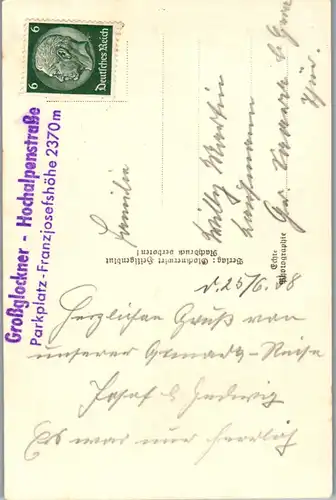 6 Deutsches Reich 6
Großglockner - Hochalpenstraße
Parkplatz-Franzjosefshöhe 2370m
Familie
Willy Martin
Kaufmann
Thür.
Verlag: Glocknerwirt Heiligenblut
Nachdruck verboten!
Echte
Photographie
d. 25/6. 38
Herzlichen Gruß von
unserer Ostmark-Reise
Josef & Hedwig
Es war nur herrlich